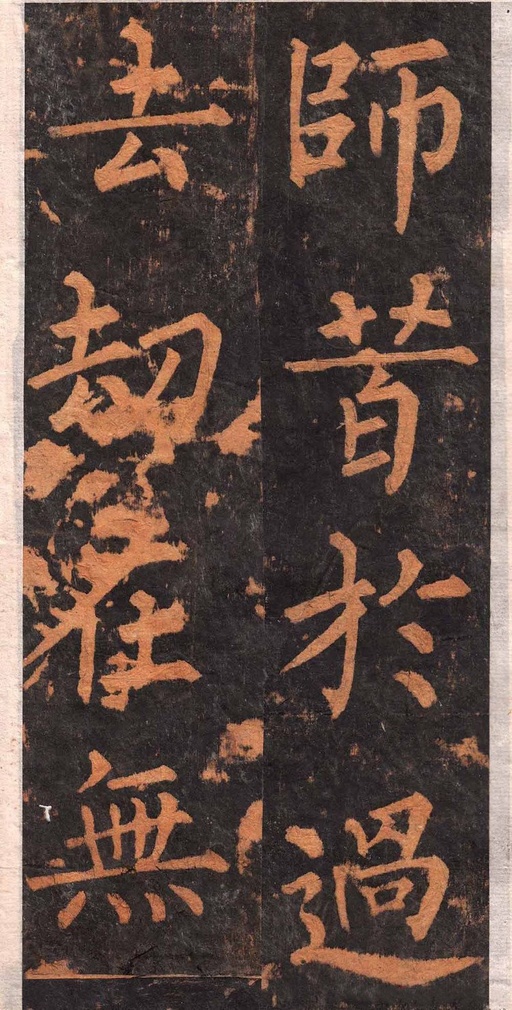 師昔於過
去劫無